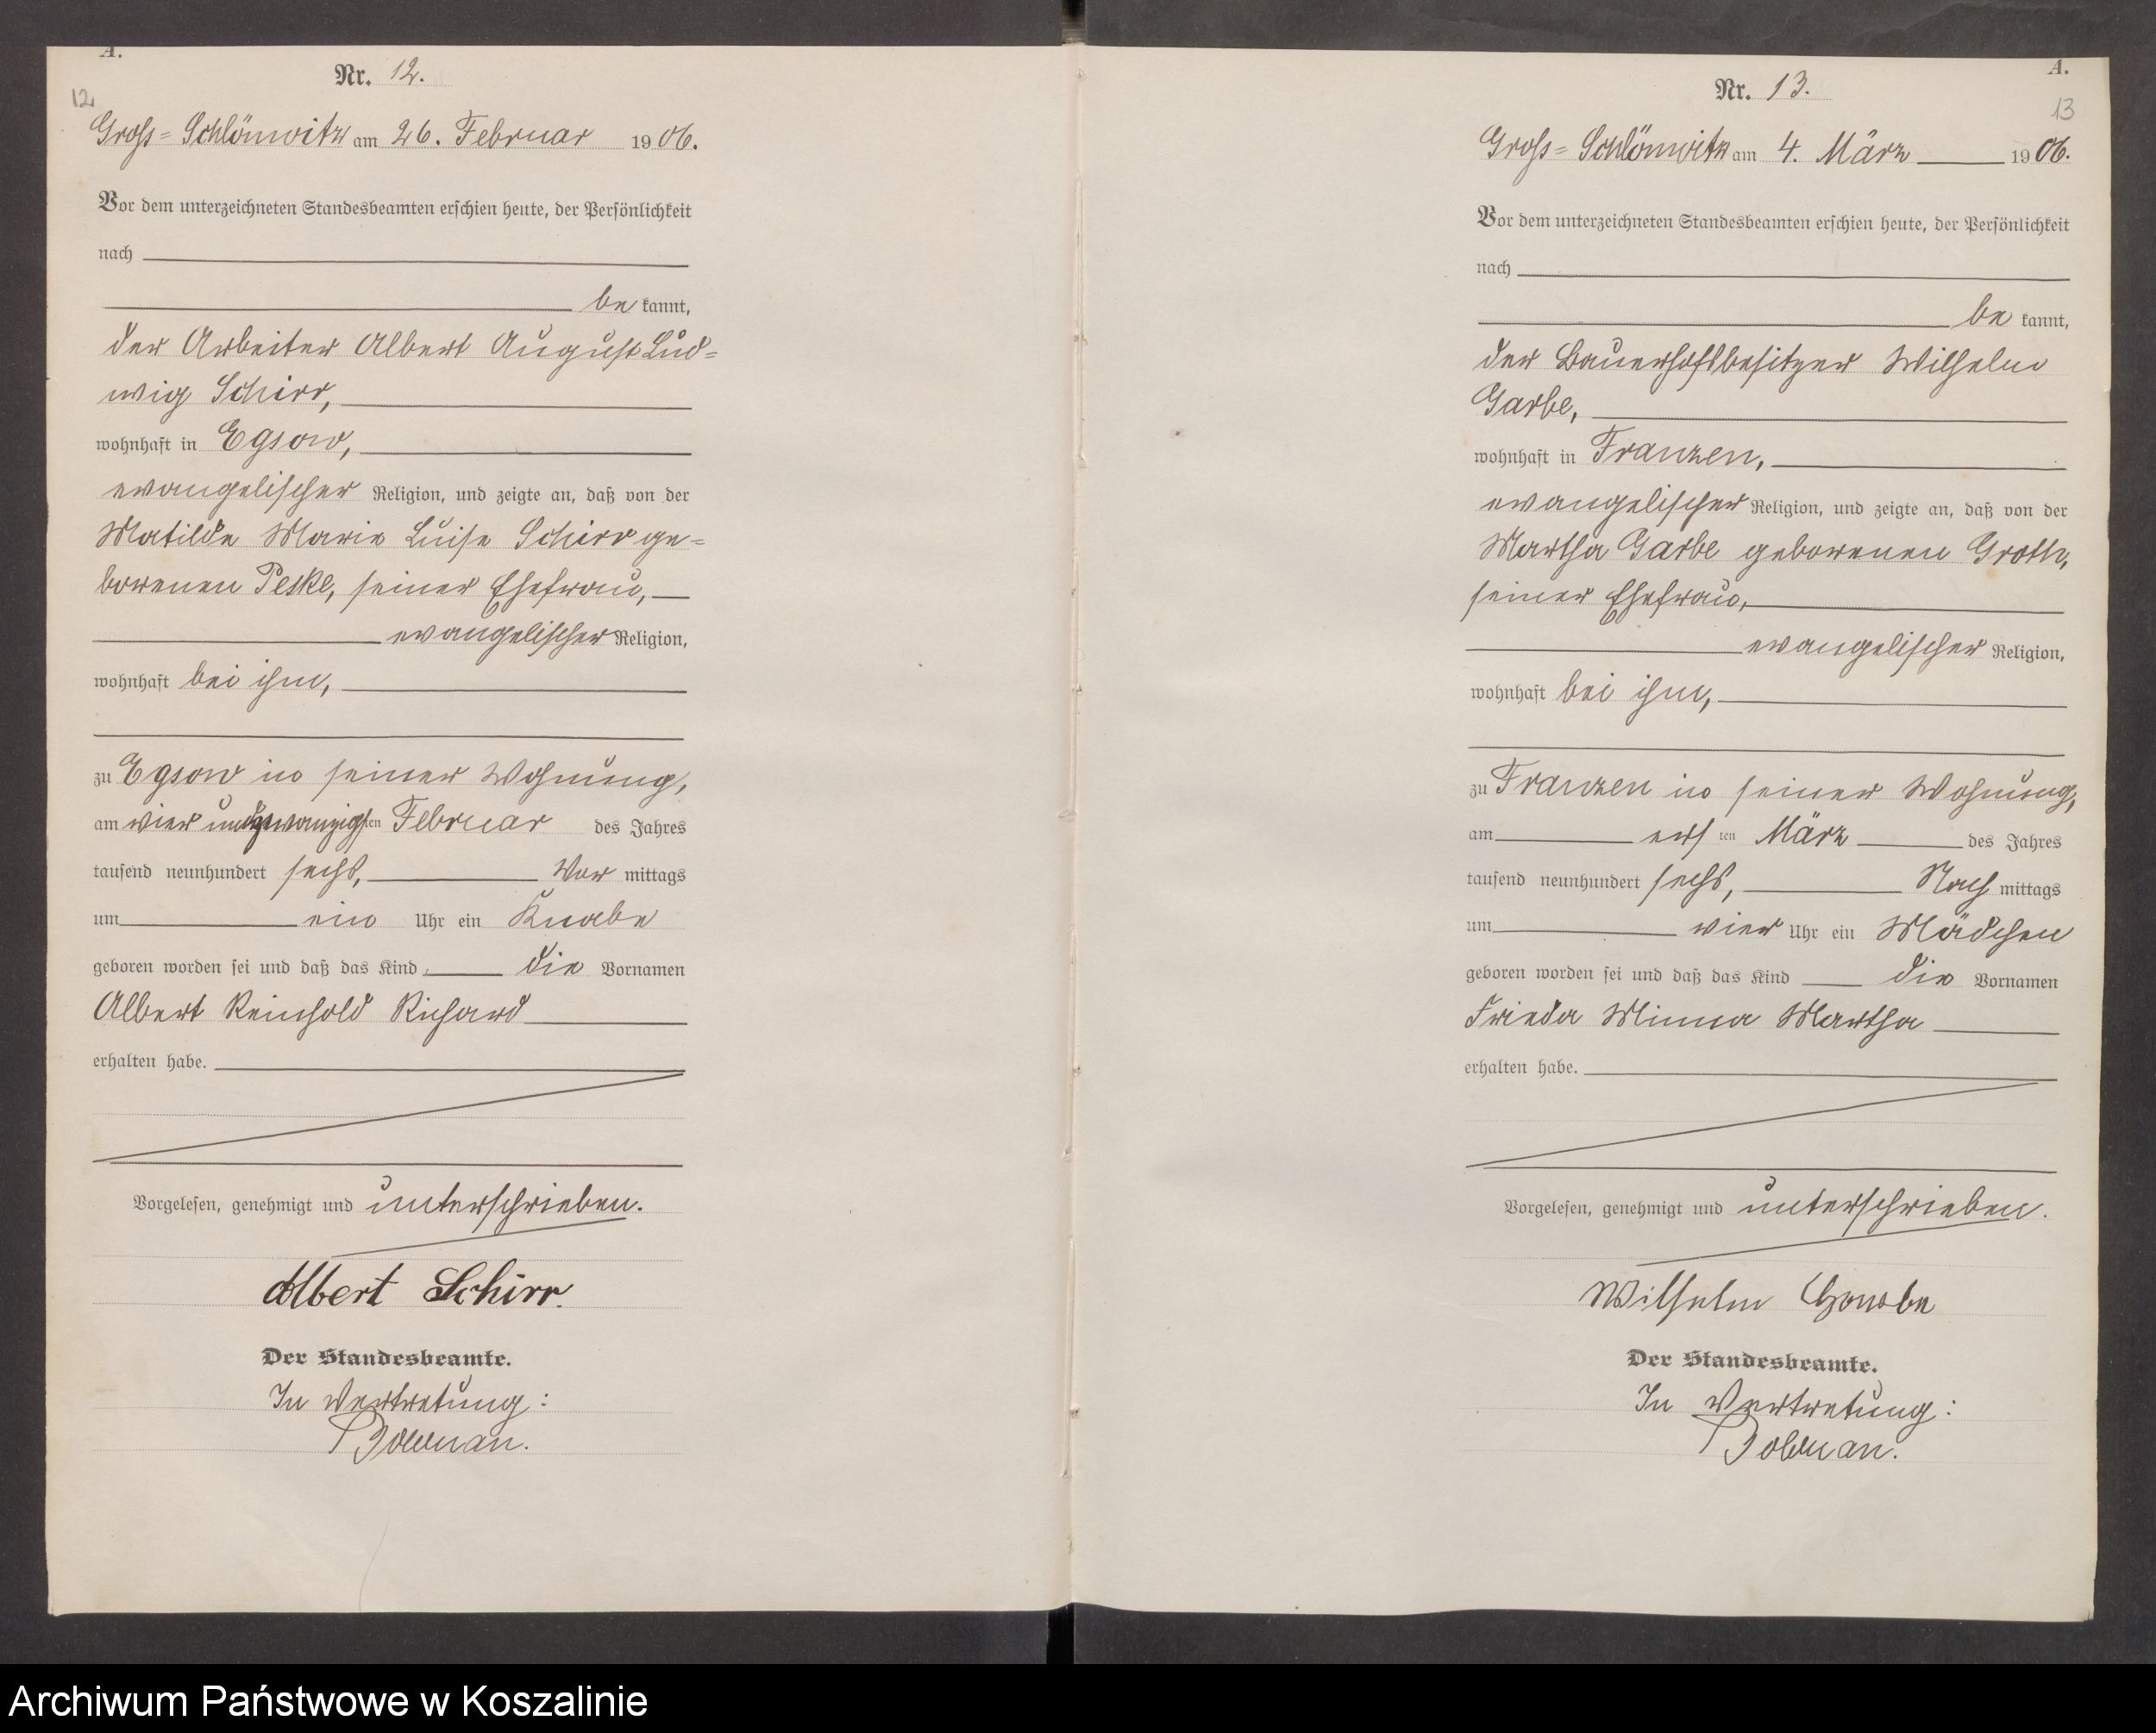 A.
Nr. 12.
12
Gross=Schlönwitz am 26. Februar 1906.
Vor dem unterzeichneten Standesbeamten erschien heute, der Persönlichkeit
nach
be kannt,
der Arbeiter Albert August Lud=
wig Schirr,
wohnhaft in Egsow,
evangelischer Religion, und zeigte an, daß von der
Matilde Marie Luise Schirr ge=
borenen Peske, seiner Ehefrau,
evangelischer Religion,
wohnhaft bei ihm,
zu Egsow in seiner Wohnung,
am vier undzwanzigsten Februar des Jahres
tausend neunhundert sechs, Vor mittags
um ein Uhr ein Knabe
geboren worden sei und daß das Kind die Vornamen
Albert Reinhold Richard
erhalten habe.
Vorgelesen, genehmigt und unterschrieben.
Albert Schirr.
Der Standesbeamte.
In Vertretung:
A.
Nr. 13.
13
Gross=Schlönwitz am 4. März 1906.
Vor dem unterzeichneten Standesbeamten erschien heute, der Persönlichkeit
nach
be kannt,
der Bauerhofsbesitzer Wilhelm
Garbe,
wohnhaft in Franzen,
evangelischer Religion, und zeigte an, daß von der
Martha Garbe geborenen Groth,
seiner Ehefrau,
evangelischer Religion,
wohnhaft bei ihm,
zu Franzen in seiner Wohnung,
am ersten März des Jahres
tausend neunhundert sechs, Nach mittags
um vier Uhr ein Mädchen
geboren worden sei und daß das Kind die Vornamen
Frieda Minna Martha
erhalten habe.
Vorgelesen, genehmigt und unterschrieben.
Wilhelm Garbe
Der Standesbeamte.
In Vertretung:
Archiwum Państwowe w Koszalinie